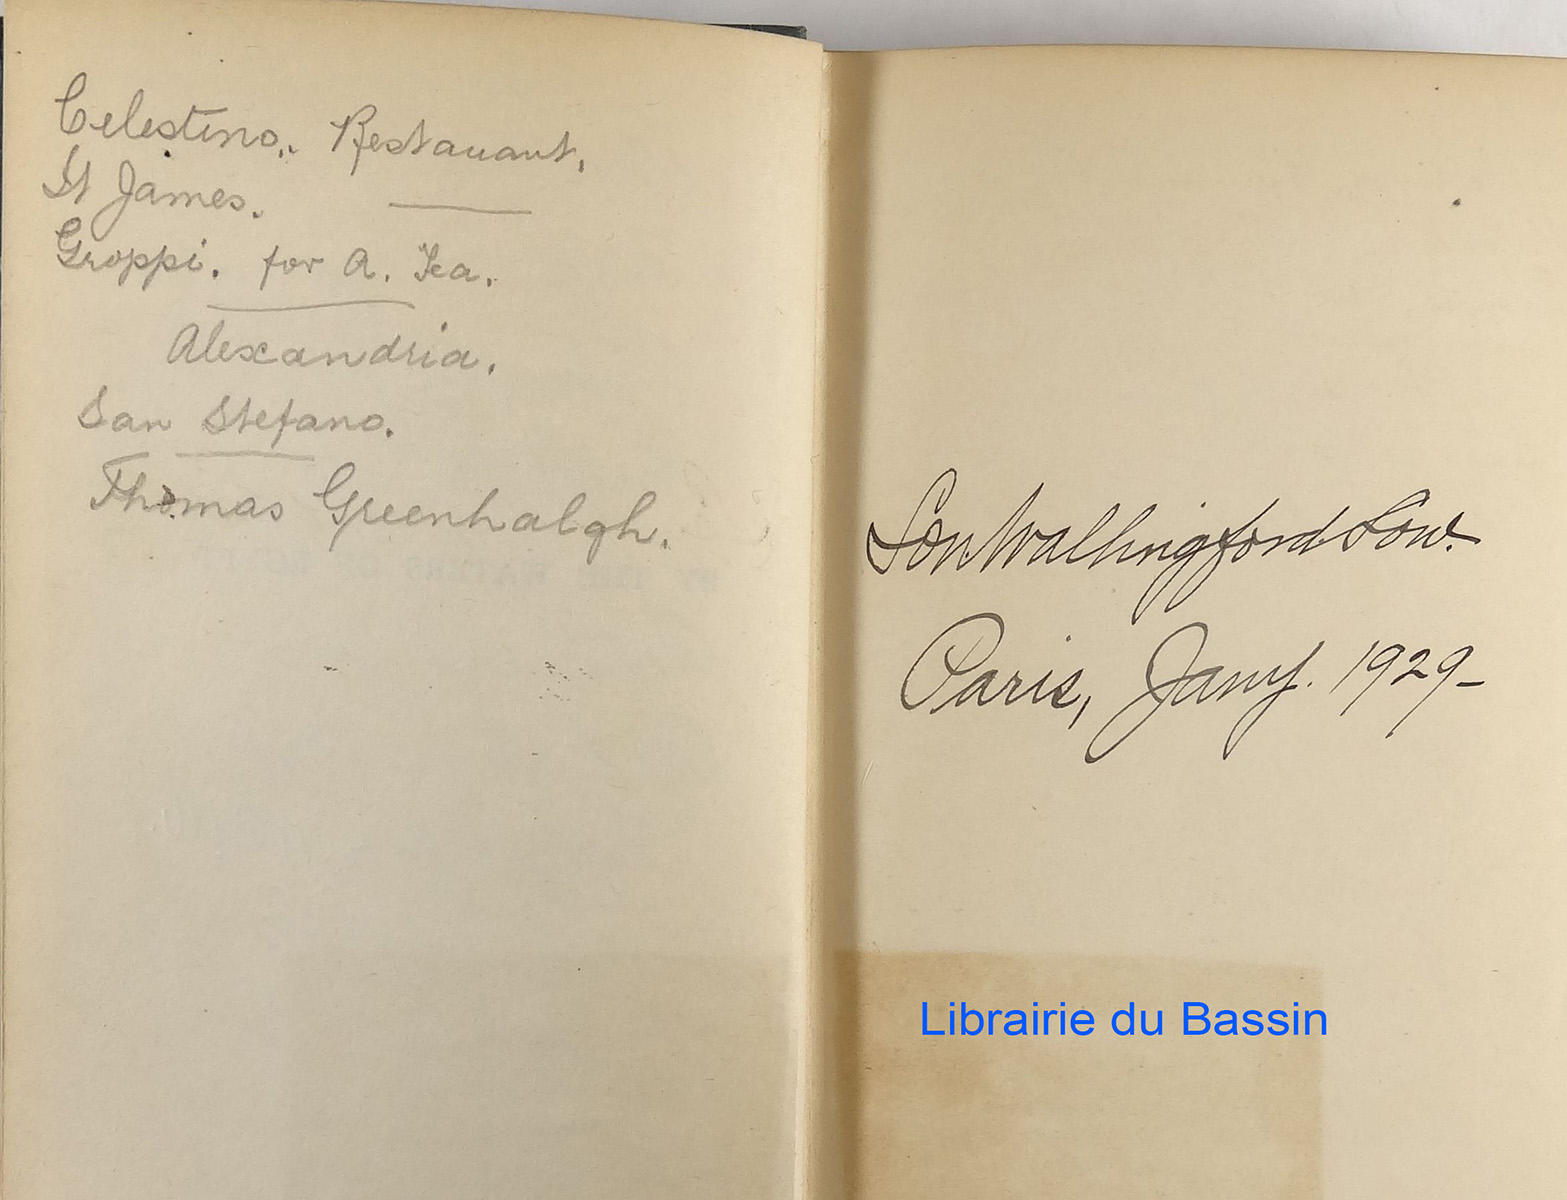 Celestino. Restauant.
St James.
Groppi. for A. Tea.
Alexandria.
San Stefano.
Thomas Greenhalgh.
Wallingford Low.
Paris, Jany. 1929-
Librairie du Bassin